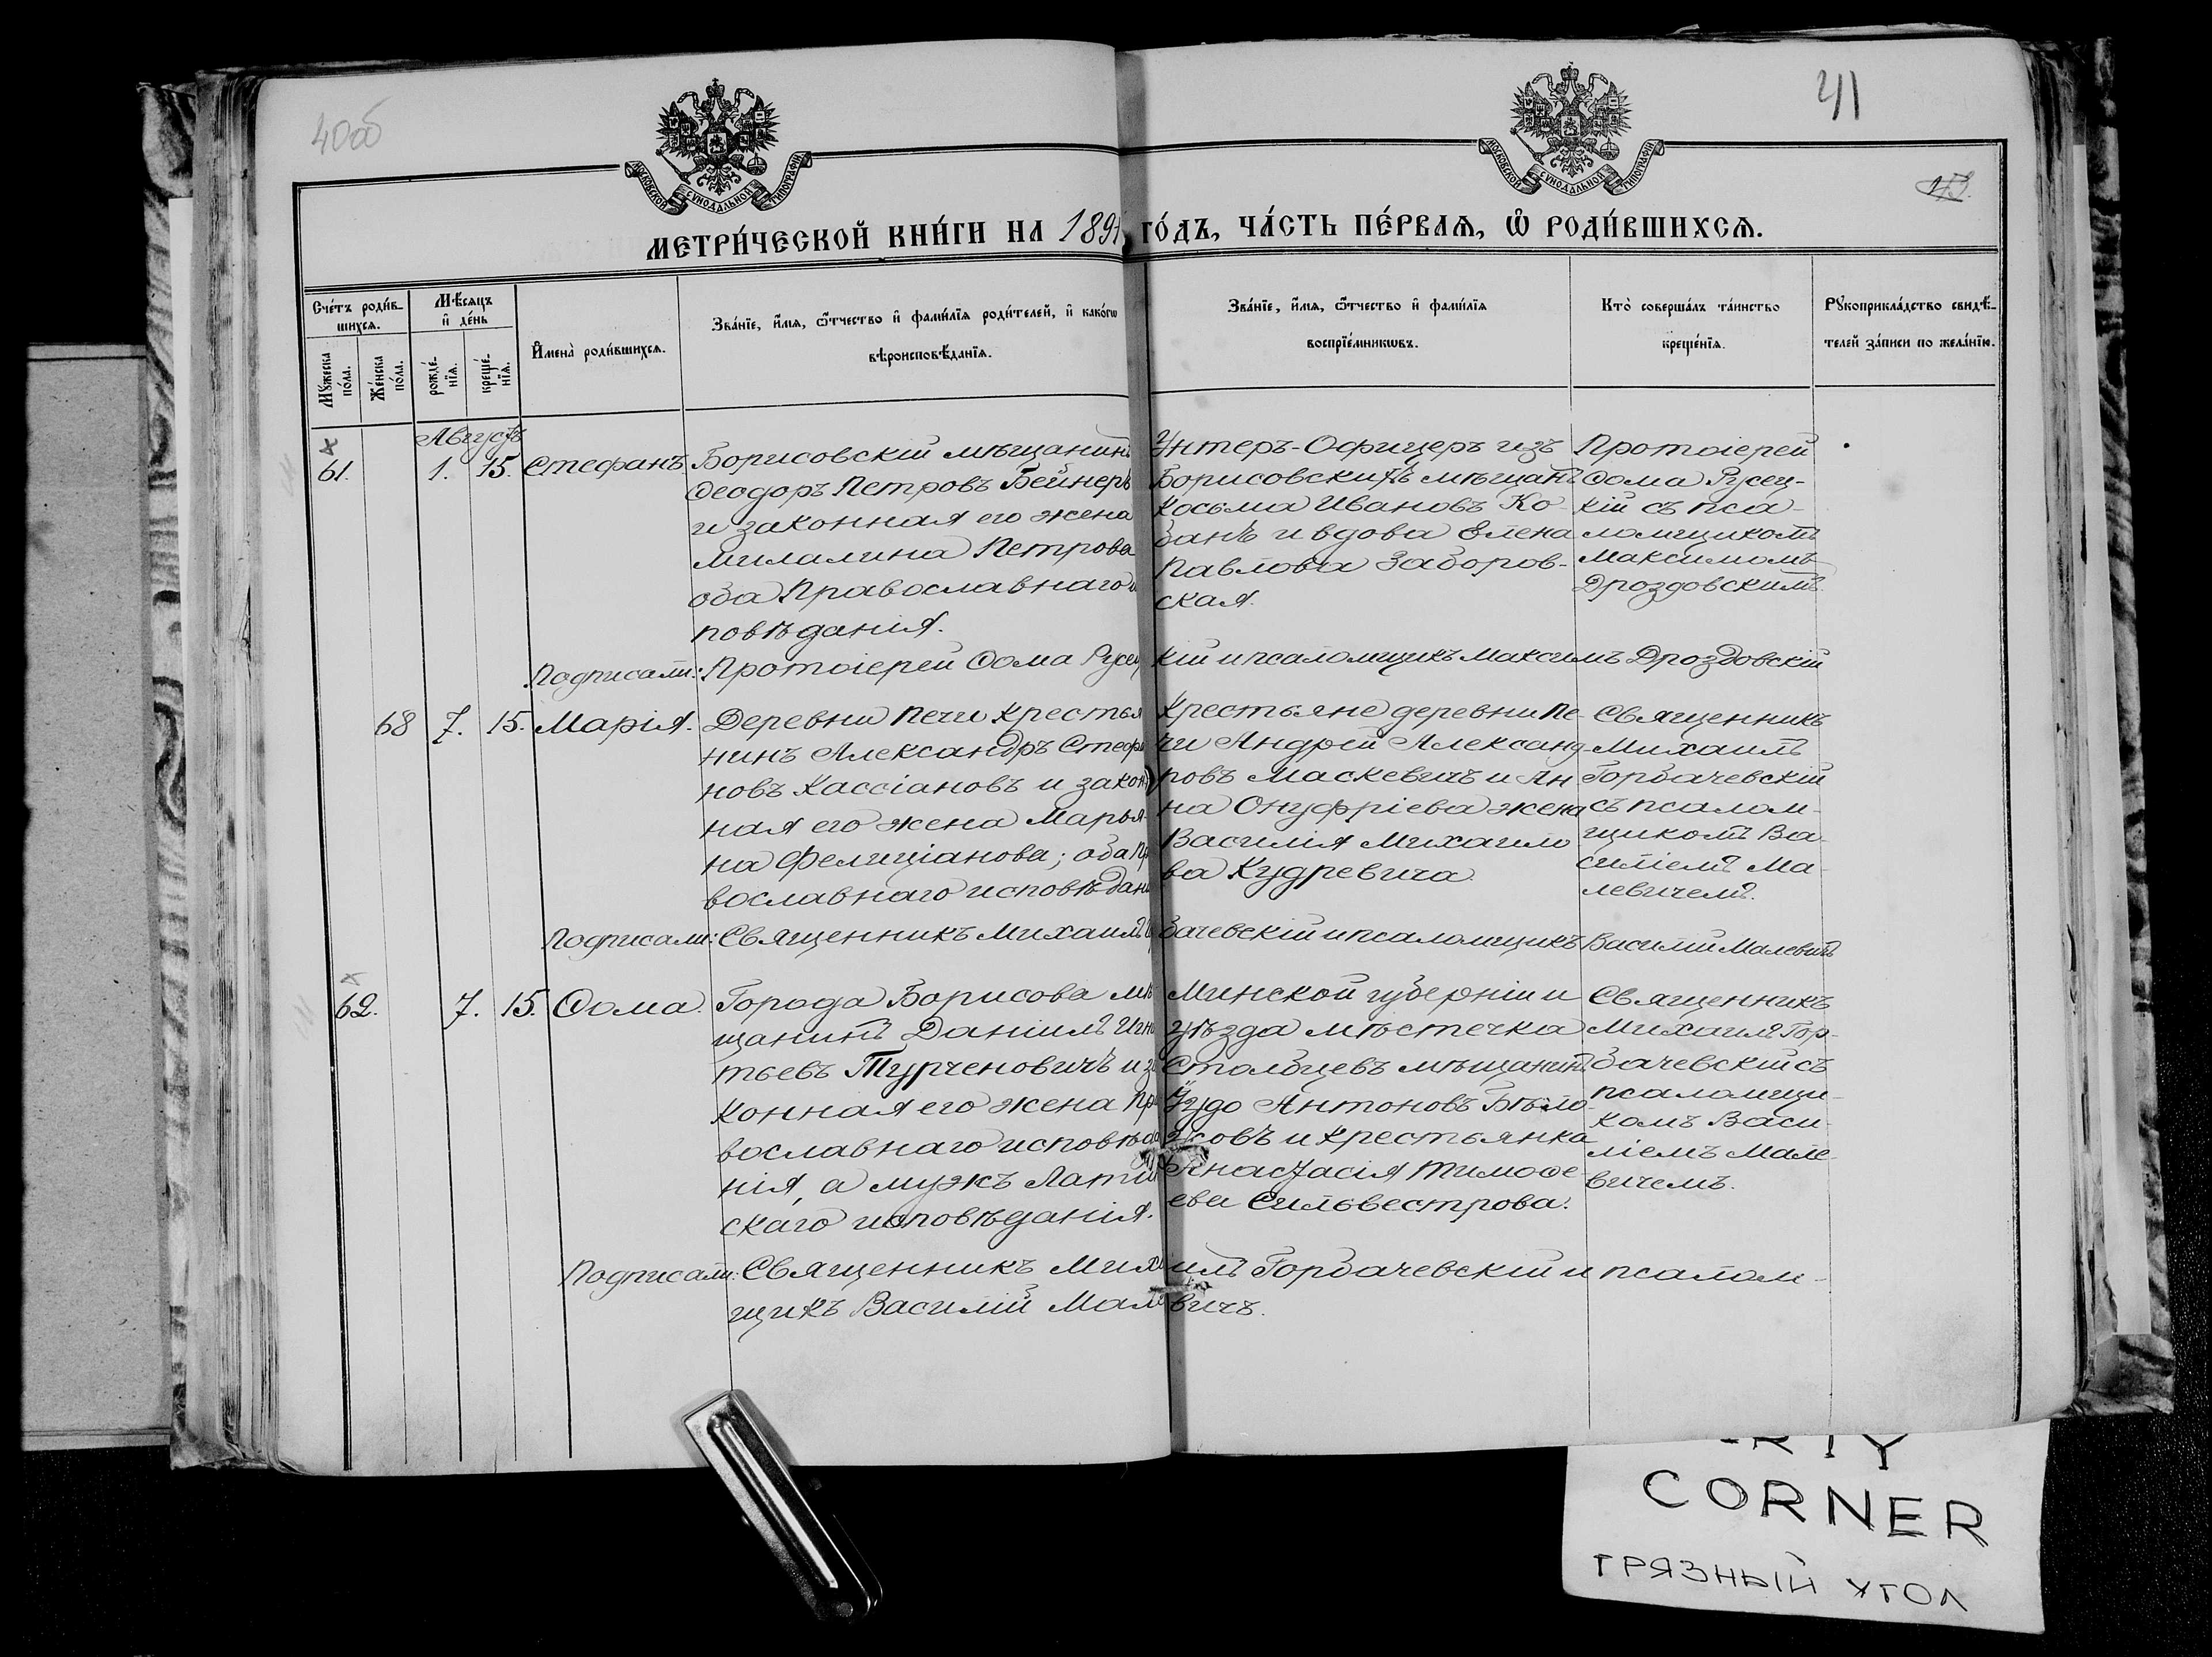 40об
41
МОСКОВСКОЙ СѴНОДАЛЬНОЙ ТИПОГРАФІИ
МОСКОВСКОЙ СѴНОДАЛЬНОЙ ТИПОГРАФІИ
МЕТРИ́ЧЕСКОЙ КНИ́ГИ НА 189 ГО́ДЪ, ЧА́СТЬ ПЕ́РВАѦ, Ѡ РОДИ́ВШИХСѦ.
Сче́тъ роди́вшихсѧ.
Мꙋ́жеска по́ла.
Же́нска по́ла.
Мѣ́сѧцъ и҆ де́нь
рожде́нїѧ.
креще́нїѧ.
И҆мена̀ роди́вшихсѧ.
Зва́нїе, и҆́мѧ, ѻ҆́тчество и҆ фами́лїѧ роди́телей, и҆ како́гѡ
вѣроисповѣ́данїѧ.
Зва́нїе, и҆́мѧ, ѻ҆́тчество и҆ фами́лїѧ
воспрїе́мникѡвъ.
Кто̀ соверша́лъ та́инство
креще́нїѧ.
Рꙋкоприкла́дство свидѣ́-
телей за́писи по жела́нїю.
Августъ
61. 1. 15. Стефанъ
Борисовскій мѣщанинъ
Ѳеодоръ Петровъ Бейнеръ
и законная его жена
Милалина Петрова
оба Православнаго и
повѣданія.
Унтеръ-Офицеръ изъ
Борисовскихъ мѣщанъ
Косьма Ивановъ Ко-
банъ и вдова Елена
Павлова Заборов-
ская.
Протоіерей
Ѳома Русец-
кій съ пса-
ломщикомъ
Максимомъ
Дроздовскимъ.
Подписали: Протоіерей Ѳома Русец кій и псаломщикъ Максимъ Дроздовскій
68 7. 15. Марія.
Деревни Печи крестья
нинъ Александръ Стефа
новъ Кассіановъ и закон
ная его жена Марья-
на Фелиціанова; оба Пр
вославнаго исповѣдані
Крестьяне деревни Пе-
чи Андрей Александ-
ровъ Маскевичъ и Ан
на Онуфріева жена
Василія Михаило
ва Кудревича.
Священникъ
Михаилъ
Горбачевскій
съ псалом-
щикомъ Ва-
силіемъ Ма-
левичемъ.
Подписали: Священникъ Михаилъ Г бачевскій и псаломщикъ Василій Малевичъ
62. 7. 15. Ѳома.
Города Борисова мѣ
щанинъ Даніилъ Игна
тьевъ Турченовичъ и за
конная его жена Пра
вославнаго исповѣда
нія, а мужъ Латин
скаго исповѣданія.
Минской губерніи и
уѣзда мѣстечка
Столбцевъ мѣщанинъ
Антоновъ Бѣло-
усовъ и крестьянка
Анастасія Тимоѳе-
ева Сильвестрова.
Священникъ
Михаилъ Гор-
бачевскій съ
псаломщи-
комъ Васи-
ліемъ Мале-
вичемъ.
Подписали: Священникъ Миха илъ Горбачевскій и псалом-
щикъ Василій Мале вичъ.
CORNER
ГРЯЗНЫЙ УГОЛ